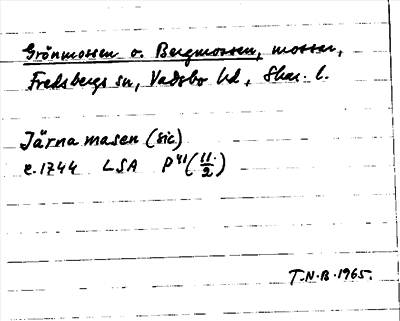 Grönmossen o. Bergmossen, mossar,
Fredsbergs sn, Vadsbo hd, Skar. l.
Järnamasen (sic)
c. 1744 LSA P41 (11/2)
T.N.B. 1965.